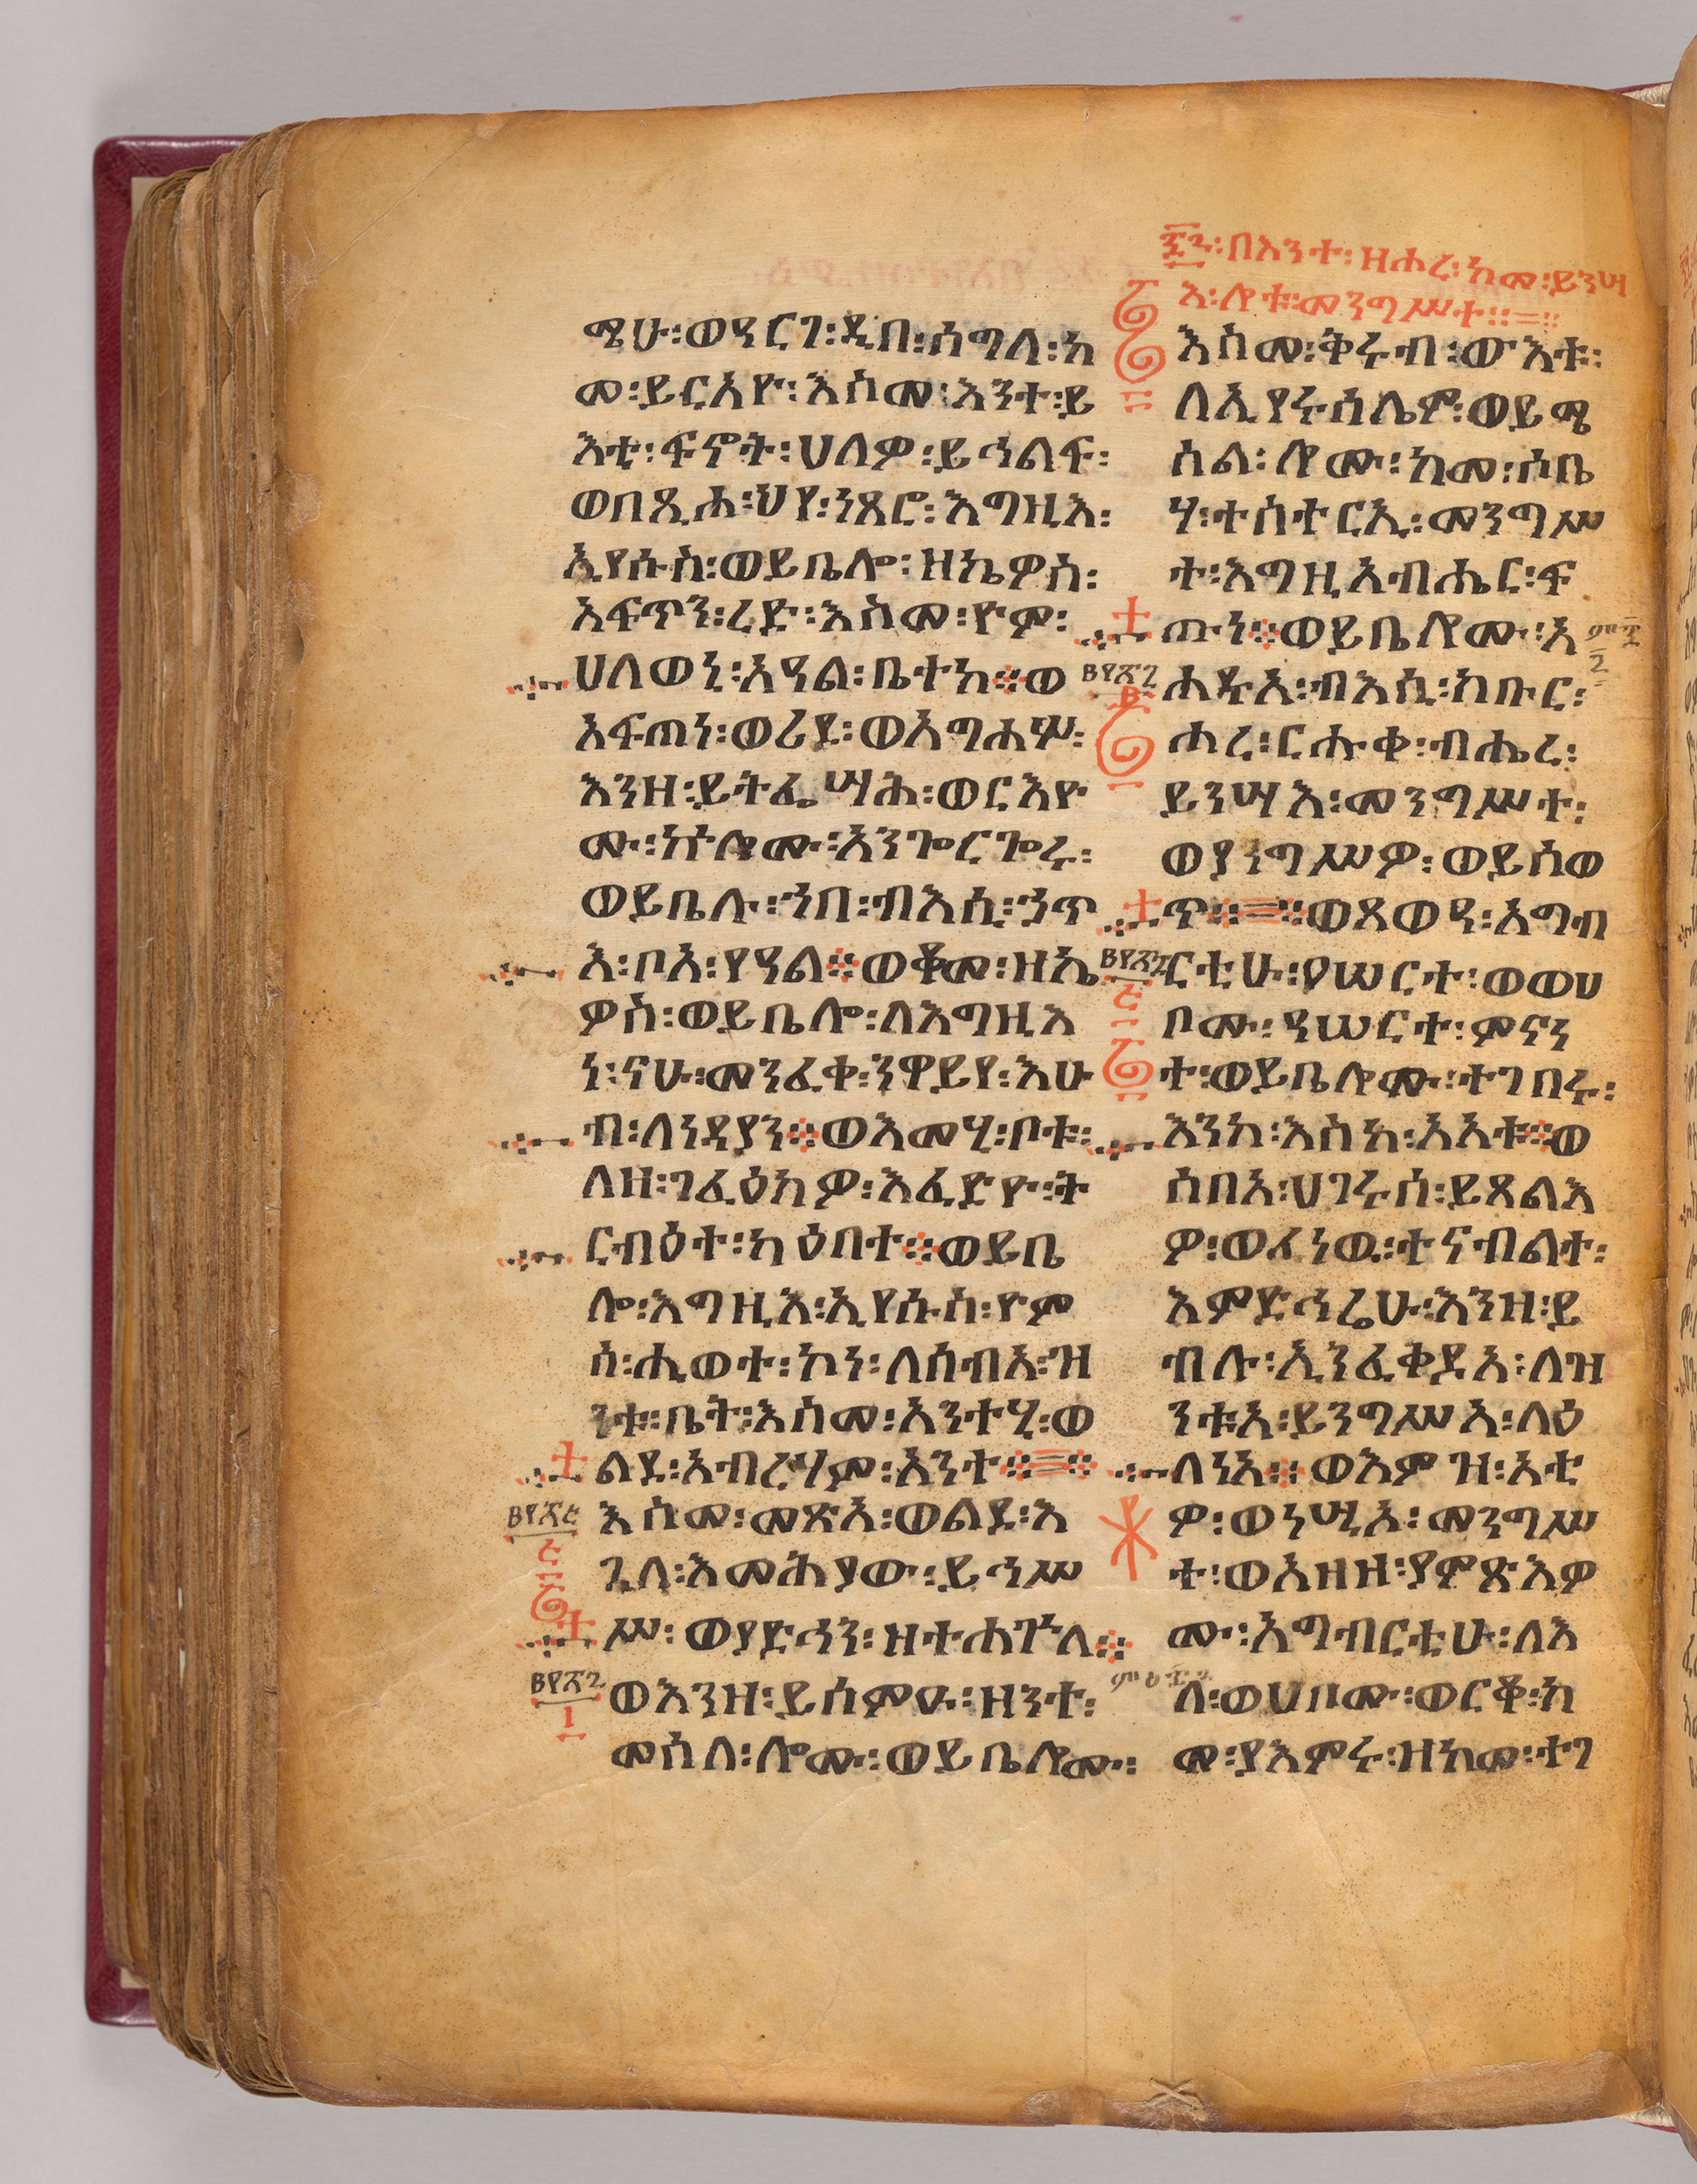 ሜሁ፡ወዓርገ፡ዲበ፡ሰግላ፡ከ
መ፡ይርአዮ፡እስመ፡እንተ፡ይ
እቲ፡ፍኖት፡ሀለዎ፡ይኅልፍ፡
ወበጺሖ፡ህየ፡ነጸሮ፡እግዚእ፡
ኢየሱስ፡ወይቤሎ፡ዘኬዎስ፡
አፍጥን፡ረድ፡እስመ፡ዮም፡
ሀለወኒ፡አዓል፡ቤተከ፨ወ
አፍጠነ፡ወሪደ፡ወአግሐሦ፡
እንዘ፡ይትፌሣሕ፡ወርእዮ
ሙ፡ኵሎሙ፡አንጐርጐሩ፡
ወይቤሉ፡ኀበ፡ብእሲ፡ኃጥ
እ፡ቦአ፡የዓል፨ወቆመ፡ዘኬ
ዎስ፡ወይቤሎ፡ለእግዚእ
ነ፡ናሁ፡መንፈቀ፡ንዋይየ፡እሁ
ብ፡ለነዳያን፨ወእመሂ፡ቦቱ፡
ለዘ፡ገፈዕክዎ፡እፈድዮ፡ት
ርብዕተ፡ካዕበተ፨ወይቤ
ሎ፡እግዚእ፡ኢየሱስ፡ዮም
ሰ፡ሒወተ፡ኮነ፡ለሰብአ፡ዝ
ንቱ፡ቤት፡እስመ፡አንተሂ፡ወ
ልደ፡አብረሃም፡አንተ፨፨
እስመ፡መጽአ፡ወልደ፡እ
ጓለ፡እመሕያው፡ይኅሥ
ሥ፡ወያድኅን፡ዘተሐጕለ፨
ወእንዘ፡ይሰምዑ፡ዘንተ፡
መሰለ፡ሎሙ፡ወይቤሎሙ፡
፷፫፡በእንተ፡ዘሐረ፡ከመ፡ይንሣ
እ፡ሎቱ፡መንግሥተ፡፡=፡፡
እስመ፡ቅሩብ፡ውእቱ፡
ለኢየሩሰሌም፡ወይሜ
ስል፡ሎሙ፡ከመ፡ሶቤ
ሃ፡ተሰተርኢ፡መንግሥ
ተ፡እግዚአብሔር፡ፍ
ጡነ፨ወይቤሎሙ፡አ
ሐዱአ፡ብእሲ፡ከቡር፡
ሐረ፡ርሑቀ፡ብሔረ፡
ይንሣእ፡መንግሥተ፡
ወያንግሥዎ፡ወይሰወ
ጥ፨፨ወጸወዓ፡አግብ
ርቲሁ፡ዐሠርተ፡ወወሀ
ቦሙ፡ዓሠርተ፡ምናን
ተ፡ወይቤሎሙ፡ተገበሩ፡
እንከ፡እስከ፡አአቱ፨ወ
ሰበአ፡ሀገሩሰ፡ይጸልእ
ዎ፡ወፈነዉ፡ተናብልተ፡
እምድኅሬሁ፡እንዘ፡ይ
ብሉ፡ኢንፈቅደአ፡ለዝ
ንቱአ፡ይንግሥአ፡ላዕ
ለነአ፨ወእምዝ፡አቲ
ዎ፡ወነሢአ፡መንግሥ
ተ፡ወአዘዘ፡ያምጽእዎ
ሙ፡አግብርቲሁ፡ለእ
ለ፡ወሀቦሙ፡ወርቆ፡ከ
መ፡ያእምሩ፡ዝከመ፡ተገ